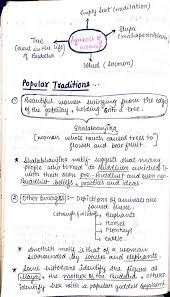 Empty seat (meditation)
Tree
(event in the life of Buddha)
Symbols of worship
Stupa
(mahaparinibbana)
Wheel (sermon)
Popular Traditions...
① Beautiful women swinging from the edge
of the gateway, holding onto a tree.
Shalabhanjika
(woman whose touch caused trees to
flower and bear fruit.
* Shalabhanjika motif suggest that many
people who turned to Buddhism enriched it
with their own pre-Buddhist and even non-
Buddhist beliefs, practices and ideas
② Other Images - Depictions of animals are
found here.
elephants
Horses
Monkeys
Cattle
* Another motif is that of a woman
surrounded by lotuses and elephants.
* Some historians identify the figure as
Maya, the mother of the Buddha, others
identify her with a popular goddess Gajalakshmi